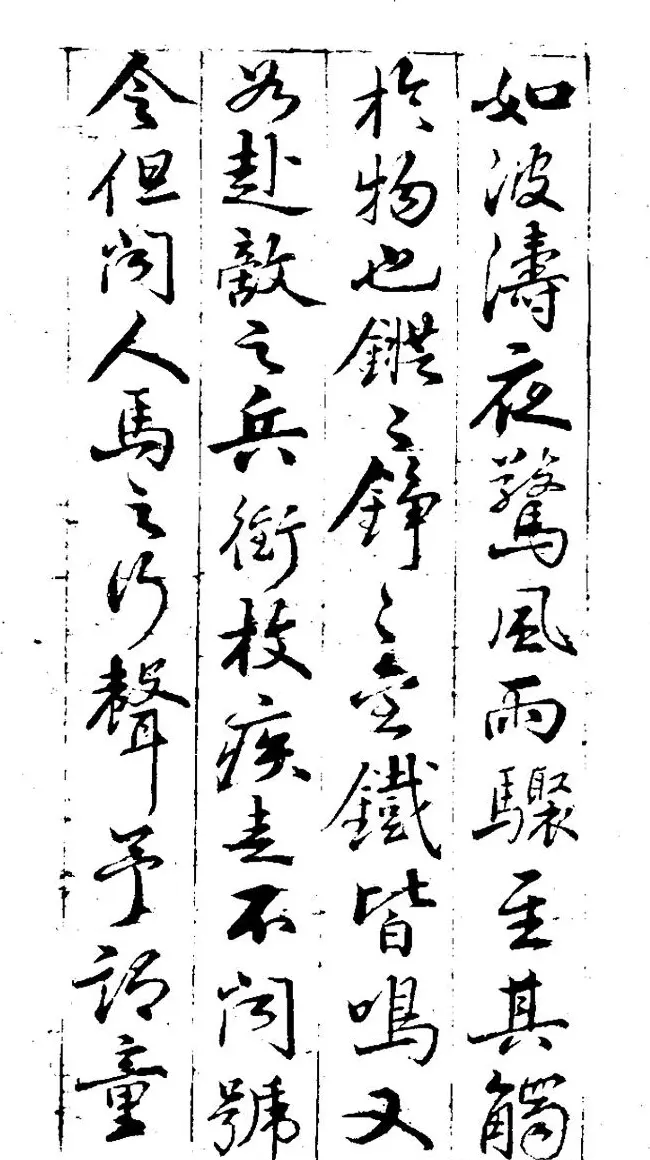 如波濤夜驚風雨驟至其觸
於物也鏦〻錚〻金鐵皆鳴又
如赴敵之兵銜枚疾走不聞號
令但聞人馬之行聲予謂童